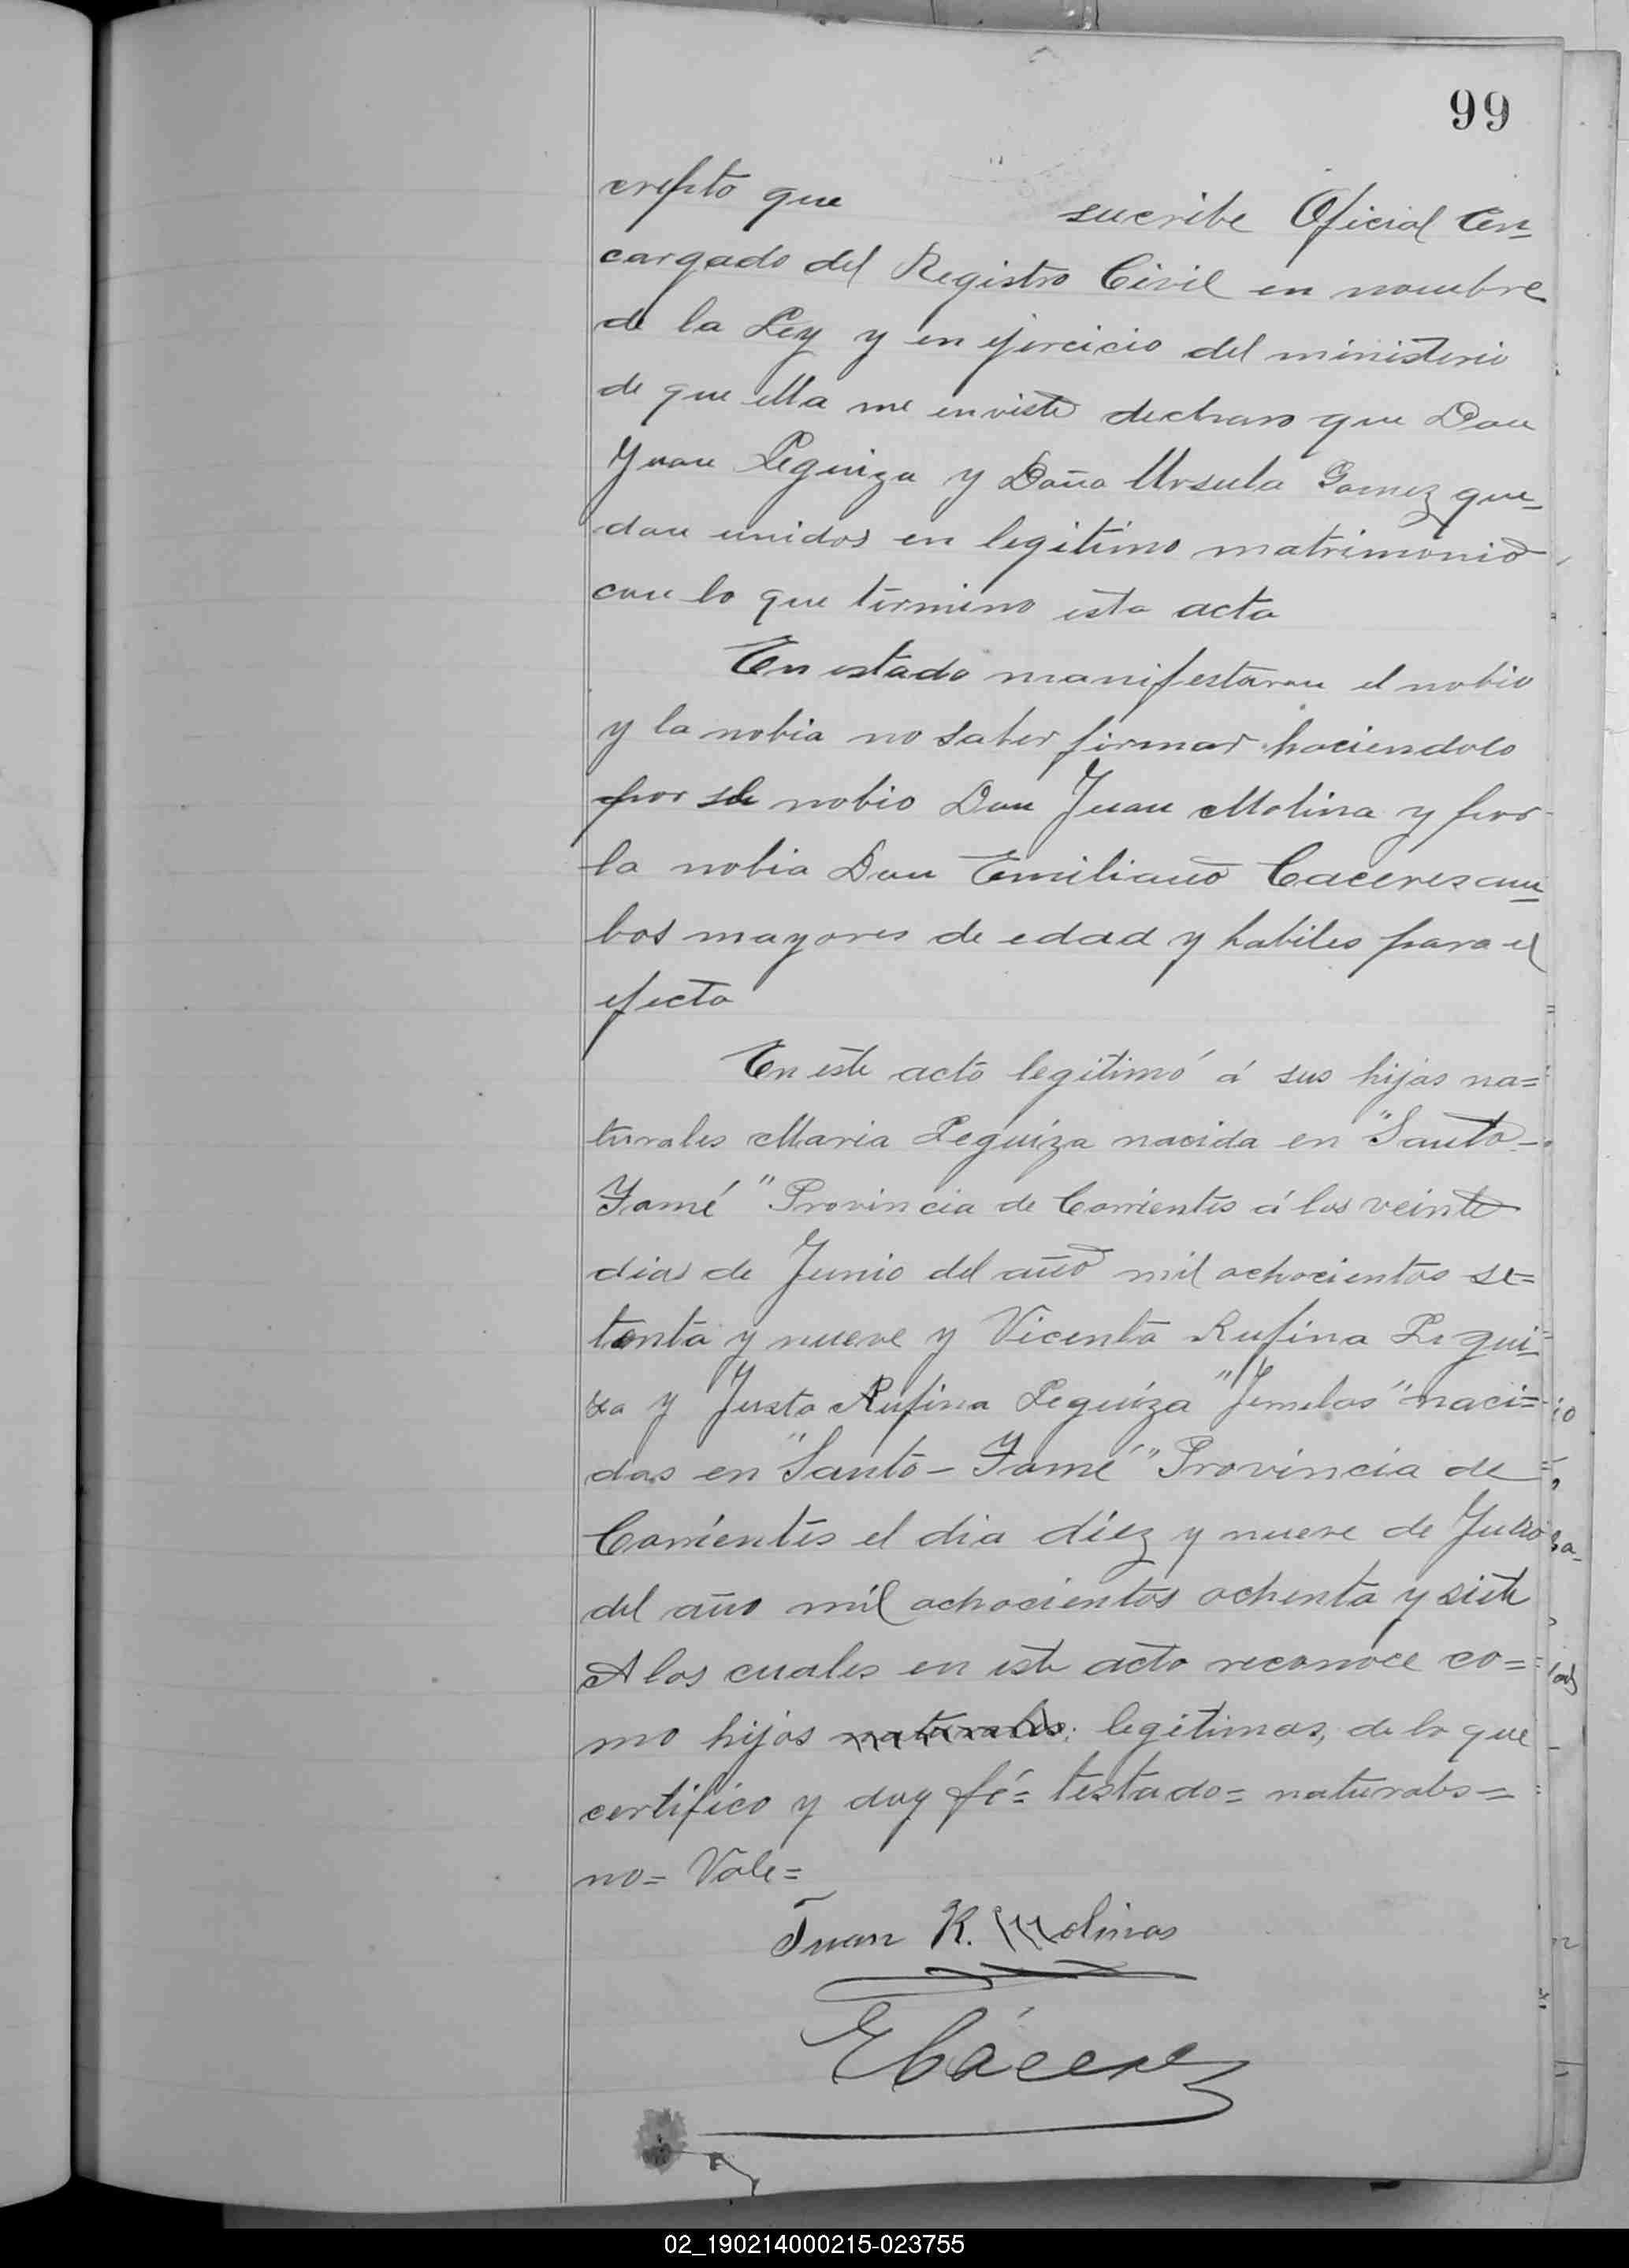 99
crepto que sucribe Oficial En=
cargado del Registro Civil en nombre
de la Ley y en ejercicio del ministerio
de que ella me enviste declaro que Don
Juan Leguiza y Doña Ursula Gomez que=
dan unidos en legitimo matrimonio
con lo que termino esta acta
En estado manifestaron el nobio
y la nobia no saber firmar haciendolo
por el nobio Don Juan Molina y por
la nobia Don Emiliano Caceres am=
bos mayores de edad y habiles para el
efecto
En este acto legitimó á sus hijas na=
turales Maria Leguiza nacida en "Santo-
Tomé" Provincia de Corrientes á los veinte
dias de Junio del año mil ochocientos se=
tenta y nueve y Vicenta Rufina Legui=
za y Justa Rufina Leguiza "Jemelas" naci=
das en "Santo-Tomé" Provincia de
Corrientes el dia diez y nueve de Julio
del año mil ochocientos ochenta y siete
A los cuales en este acto reconoce co=
mo hijos naturales; legitimas, de lo que
certifico y doy fé= testado= naturales=
no= Vale=
Juan R. Molinas
E Cáceres
02_190214000215-023755